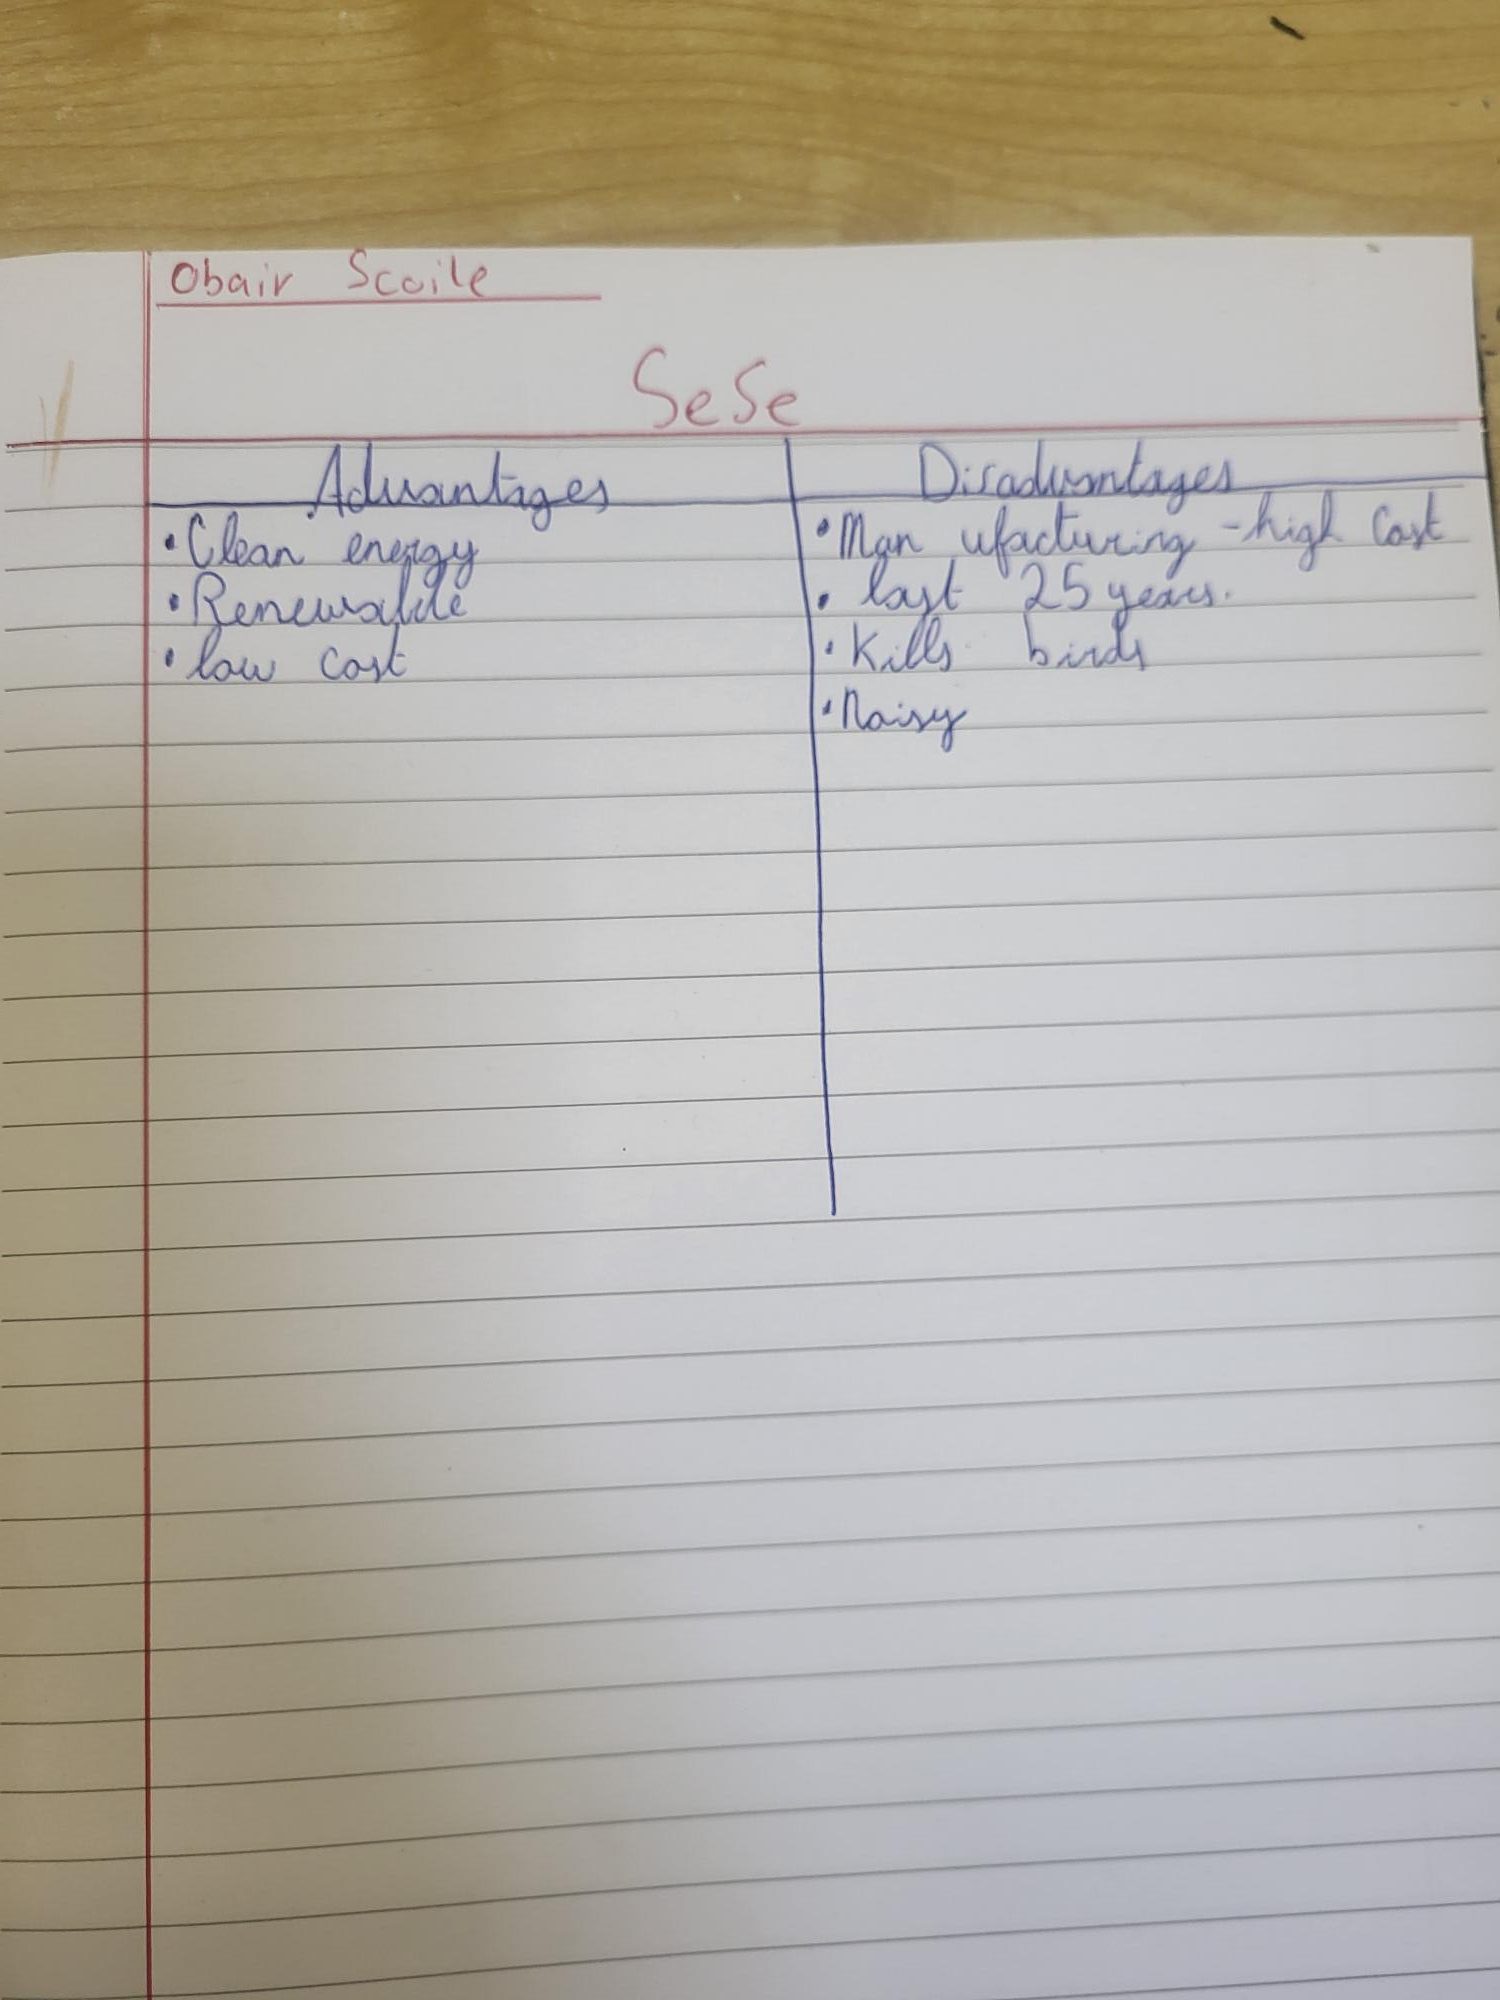 Obair Scoile
SeSe
Advantages Disadvantages
• Clean energy
• Renewable
• low cost
• Man ufacturing - high Cost
• last 25 years.
• Kills birds
• Noisy